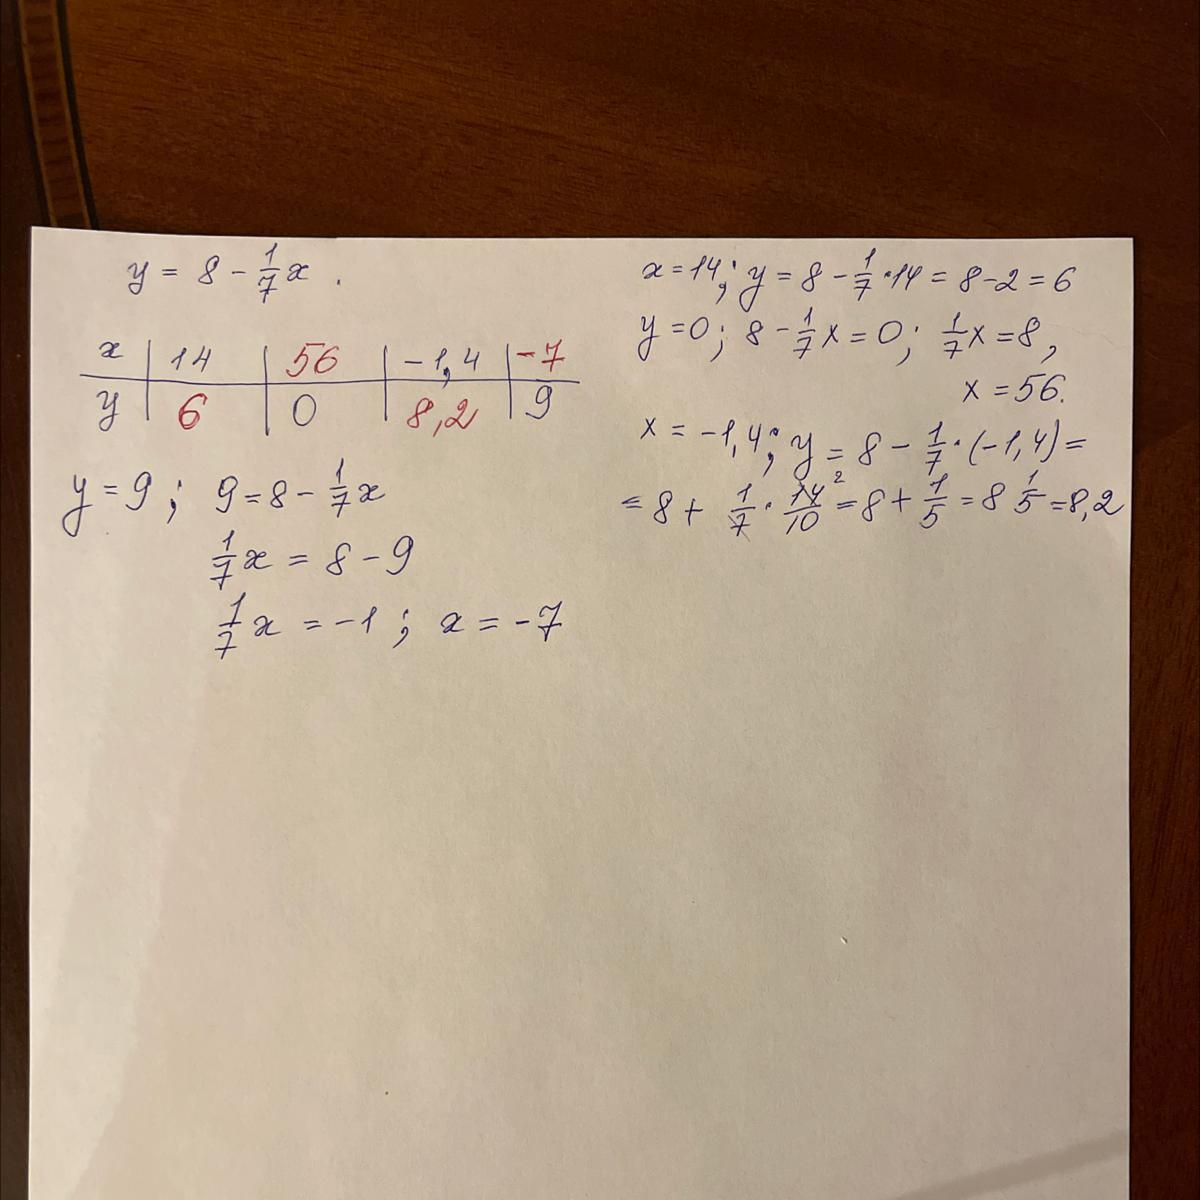 y = 8 - 1/7 x.
x | 14 | 56 | -1,4 | -7
y | 6 | 0 | 8,2 | 9
y = 9; 9 = 8 - 1/7 x
1/7 x = 8 - 9
1/7 x = -1; x = -7
x = 14; y = 8 - 1/7 · 14 = 8 - 2 = 6
y = 0; 8 - 1/7 x = 0; 1/7 x = 8,
x = 56.
x = -1,4; y = 8 - 1/7 · (-1,4) =
= 8 + 1/7 · 14/10 2 = 8 + 1/5 = 8 1/5 = 8,2